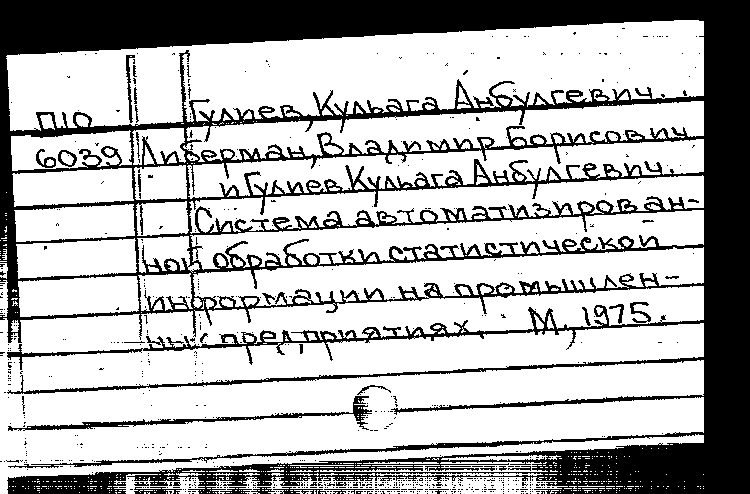 П10 Гулиев, Кульага Анбулгевич.
6039 Либерман, Владимир Борисович
и Гулиев Кульага Анбулгевич.
Система автоматизирован-
ной обработки статистической
информации на промышлен-
ных предприятиях. М., 1975.